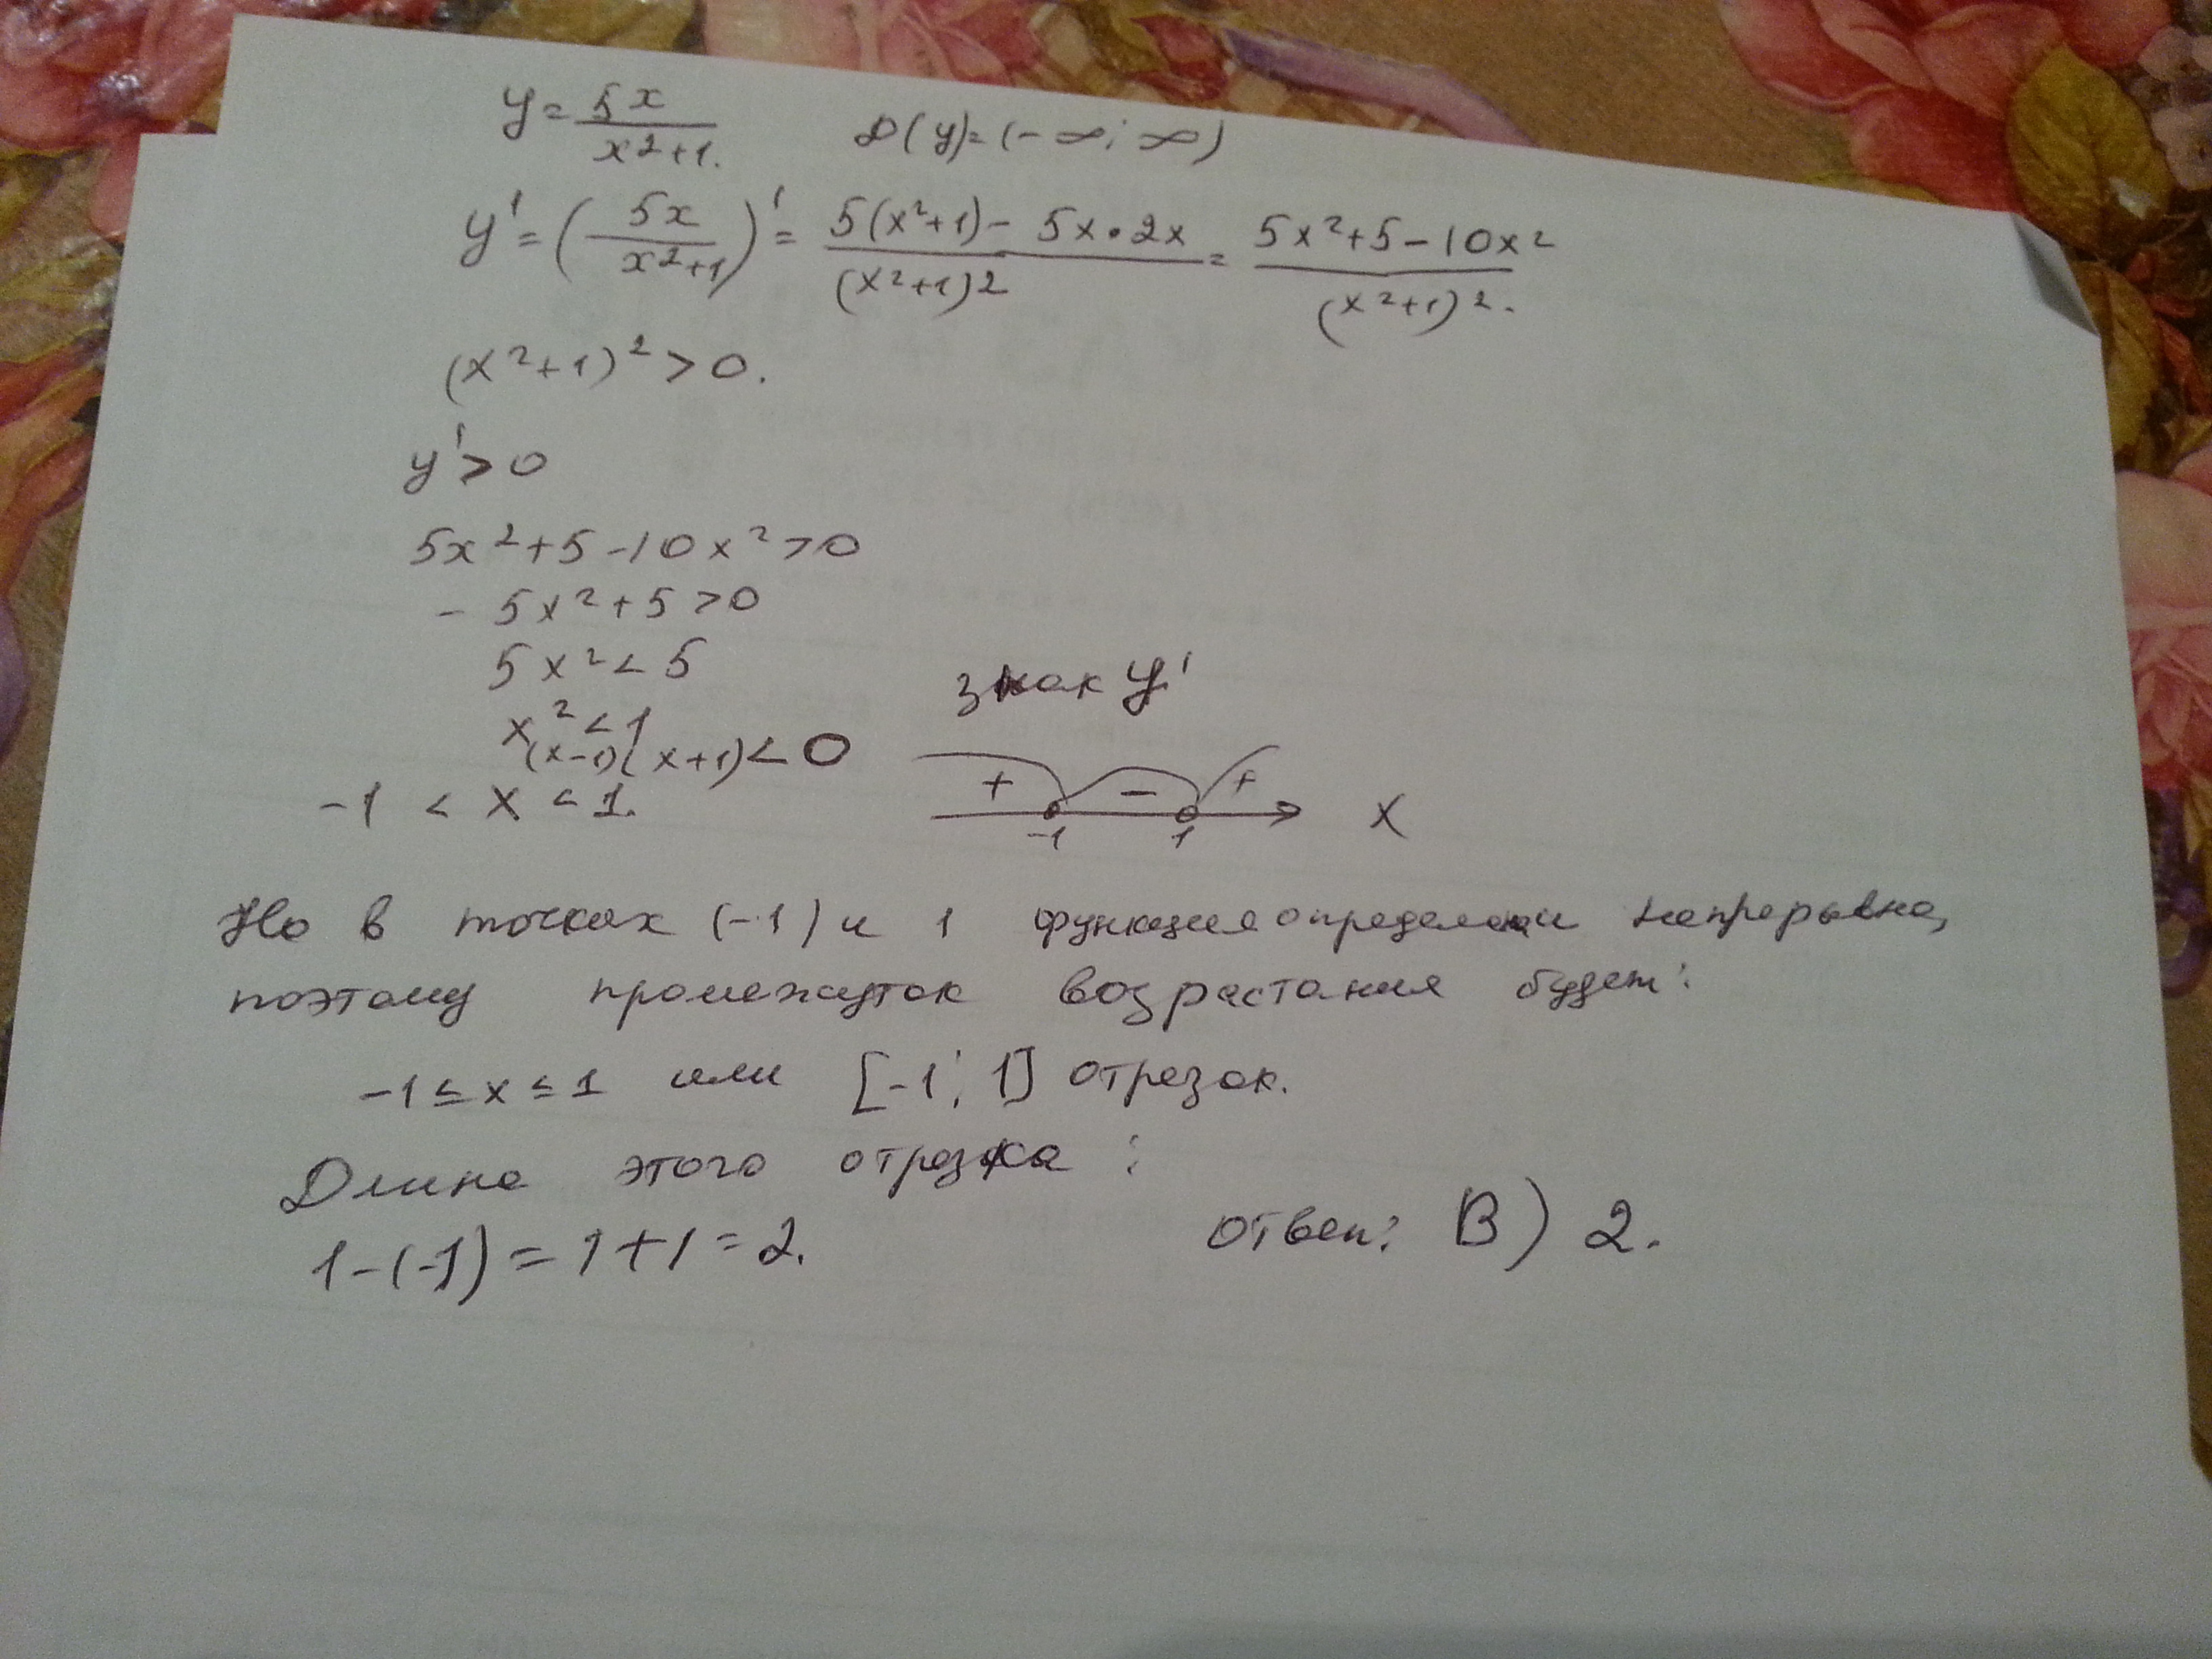 y = 5x / x²+1. D(y)=(-∞; ∞)
y' = (5x / x²+1)' = 5(x²+1) - 5x·2x / (x²+1)² = 5x²+5-10x² / (x²+1)².
(x²+1)² > 0.
y' > 0
5x²+5-10x² > 0
- 5x²+5 > 0
5x² < 5
знак y'
x² < 1
(x-1)(x+1) < 0
+ - +
-1 < x < 1.
-1 1 x
Но в точках (-1) и 1 функция определена и непрерывна,
поэтому промежуток возрастания будет:
-1 ≤ x ≤ 1 или [-1; 1] отрезок.
Длина этого отрезка:
1-(-1) = 1+1 = 2.
ответ: В) 2.